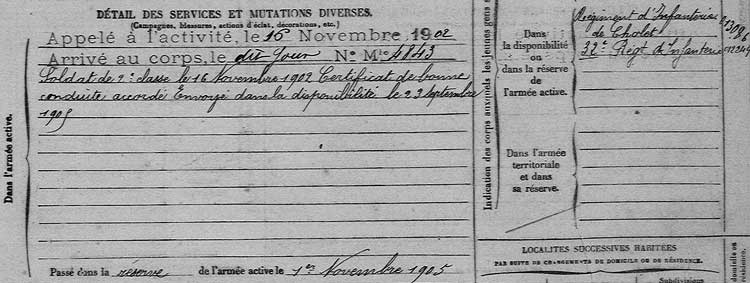 DÉTAIL DES SERVICES ET MUTATIONS DIVERSES.
(Campagnes, blessures, actions d'éclat, décorations, etc.)
Appelé à l'activité, le 16 Novembre 1902
Arrivé au corps, le dit jour N° Mle 4843
Soldat de 2e classe le 16 Novembre 1902 Certificat de bonne
conduite accordé Envoyé dans la disponibilité le 23 septembre
1905
Dans l'armée active.
Passé dans la réserve de l'armée active le 1er Novembre 1905
Indication des corps auxquels les jeunes gens s
Dans
la disponibilité
ou
dans la réserve
de
l'armée active.
Régiment d'Infanterie
de Cholet
32e Régt d'Infanterie
Dans l'armée
territoriale
et dans
sa réserve.
LOCALITÉS SUCCESSIVES HABITÉES
PAR SUITE DE CHANGEMENTS DE DOMICILE OU DE RÉSIDENCE.
Subdivisions
domicile ou
résidence.